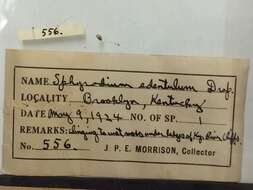 556.
NAME Sphyradium edentulum Drap.
LOCALITY Brooklyn, Kentucky
DATE May 9, 1924 NO. OF SP. 1
REMARKS: clinging to wet rocks under ledges of Ky. River Cliffs.
No. 556. J. P. E. MORRISON, Collector